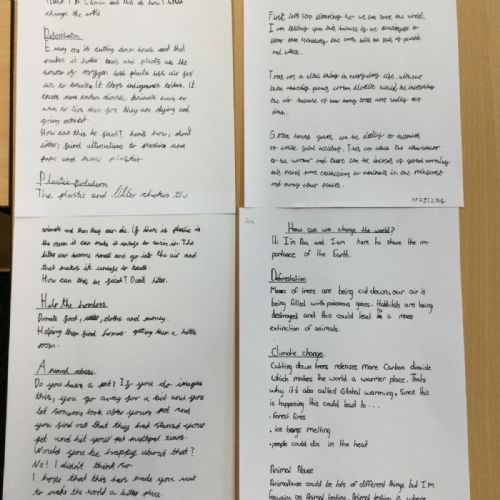 change the world
Deforestation
Every one is cutting down trees and that
makes it hotter trees and plants are the
source of oxygen less plants less air for
us to breathe. It stops indigenous tribes. It
creates more carbon dioxide. Animals have no
where to live therefore they are dying and
going extinct.
How can this be fixed? here's how, don't
litter, find alternatives to plastic and
paper and reuse plastic.
Plastic pollution
The plastic and litter chokes the
animals and then they can die. If there is plastic in
the ocean it can make it unsafe to swim in. The
litter can become small and go into the air and
that makes it unsafe to breath
How can this be fixed? Don't litter.
Help the homeless
Donate food, cloths and money.
Helping them find homes getting them a hotel
room.
Animal abuse.
Do you have a pet? If you do imagine
this, you go away for a bit and you
let someone look after your pet and
you find out that they had starved your
pet and hit your pet multiple times.
Would you be happy about that?
No! I didn't think so.
I hope that this has made you want
to make the world a better place.
First, lets stop littering so we can save the world.
I am telling you this because if we
the earth will be full of plastic
and waste.
Trees are a vital thing in everyday life, without
carbon dioxide would be
the air because of how many trees
down.
Green house gases can be deadly to
or cause fatal accident. This can cause the
to be warmer and there can be
this means more to animals in the rainforest
and many other places.
How can we change the world?
Hi I'm and I am here to share the im-
portance of the Earth.
Deforestation
Masses of trees are being cut down, our air is
being filled with poisonous gases. Habitats are being
destroyed and this could lead to a mass
extinction of animals.
Climate change.
Cutting down trees releases more Carbon dioxide
which makes the world a warmer place. Thats
why it's also called Global warming, since this
is happening this could lead to...
• forest fires
• ice bergs melting
• people could die in heat
Animal Abuse
Animal abuse could be lots of different things but I'm
focusing on Animal testing. Animal testing is where